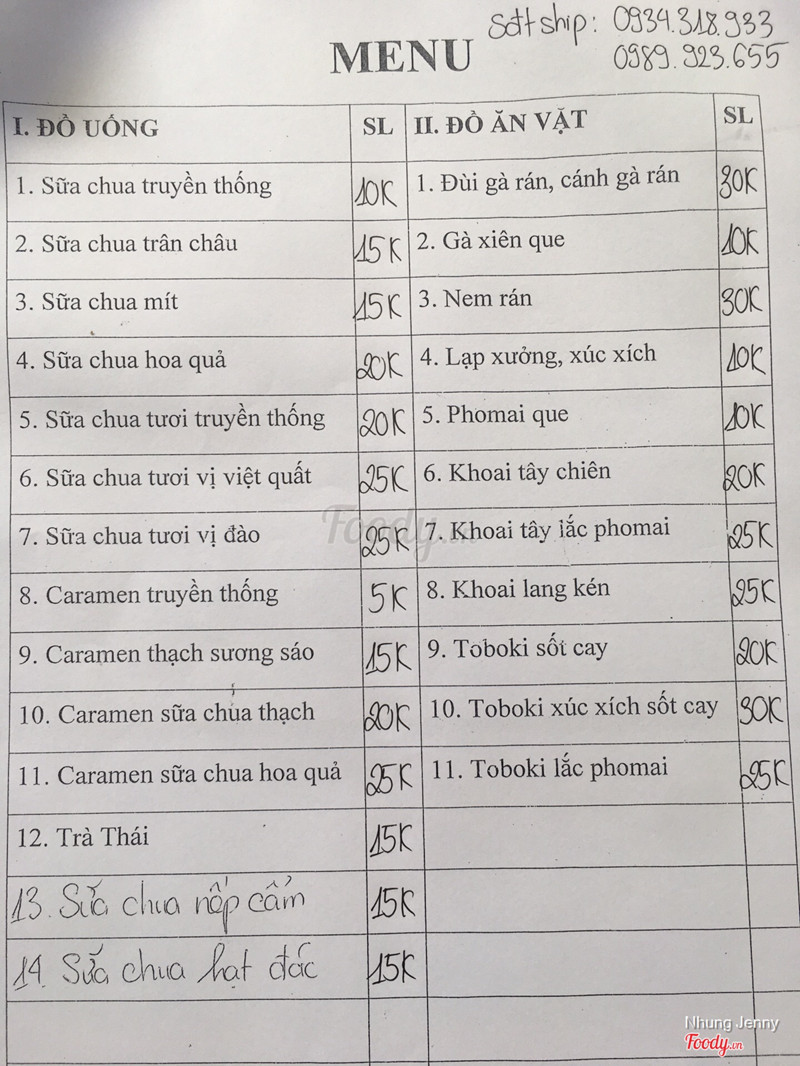 Sđt ship: 0934.318.933
0989.923.655
MENU
I. ĐỒ UỐNG SL II. ĐỒ ĂN VẶT SL
1. Sữa chua truyền thống 10K 1. Đùi gà rán, cánh gà rán 30K
2. Sữa chua trân châu 15K 2. Gà xiên que 10K
3. Sữa chua mít 15K 3. Nem rán 30K
4. Sữa chua hoa quả 20K 4. Lạp xưởng, xúc xích 10K
5. Sữa chua tươi truyền thống 20K 5. Phomai que 10K
6. Sữa chua tươi vị việt quất 25K 6. Khoai tây chiên 20K
7. Sữa chua tươi vị đào 25K 7. Khoai tây lắc phomai 25K
8. Caramen truyền thống 5K 8. Khoai lang kén 25K
9. Caramen thạch sương sáo 15K 9. Toboki sốt cay 20K
10. Caramen sữa chua thạch 20K 10. Toboki xúc xích sốt cay 30K
11. Caramen sữa chua hoa quả 25K 11. Toboki lắc phomai 25K
12. Trà Thái 15K
13. Sữa chua nếp cẩm 15K
14. Sữa chua hạt đác 15K
Foody.vn
Nhung Jenny
Foody.vn